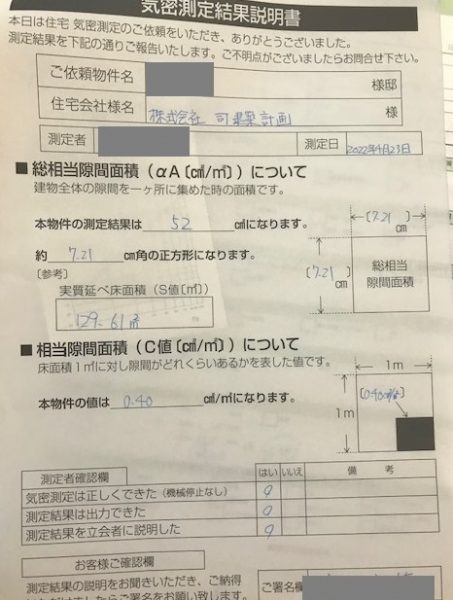 気密測定結果説明書
本日は住宅 気密測定のご依頼をいただき、ありがとうございました。
測定結果を下記の通りご報告いたします。ご不明点がございましたらお問合せ下さい。
ご依頼物件名 様邸
住宅会社様名 株式会社 司建築計画 様
測定者 測定日 2022年4月23日
■ 総相当隙間面積（αA〔c㎡/㎡〕）について
建物全体の隙間を一ヶ所に集めた時の面積です。
本物件の測定結果は 52 c㎡になります。
約 7.21 cm角の正方形になります。
〔参考〕
実質延べ床面積（S値〔㎡〕）
129.61㎡
〔7.21〕cm
〔7.21〕cm
総相当
隙間面積
■ 相当隙間面積（C値〔c㎡/㎡〕）について
床面積1㎡に対し隙間がどれくらいあるかを表した値です。
本物件の値は 0.40 c㎡/㎡になります。
1m
1m
〔0.40c㎡/㎡〕
測定者確認欄 はい いいえ 備考
気密測定は正しくできた（機械停止なし） 〇
測定結果は出力できた 〇
測定結果を立会者に説明した 〇
お客様ご確認欄
測定結果の説明をお聞きいただき、ご納得
ご署名欄
いただけましたらご署名をお願い致します。